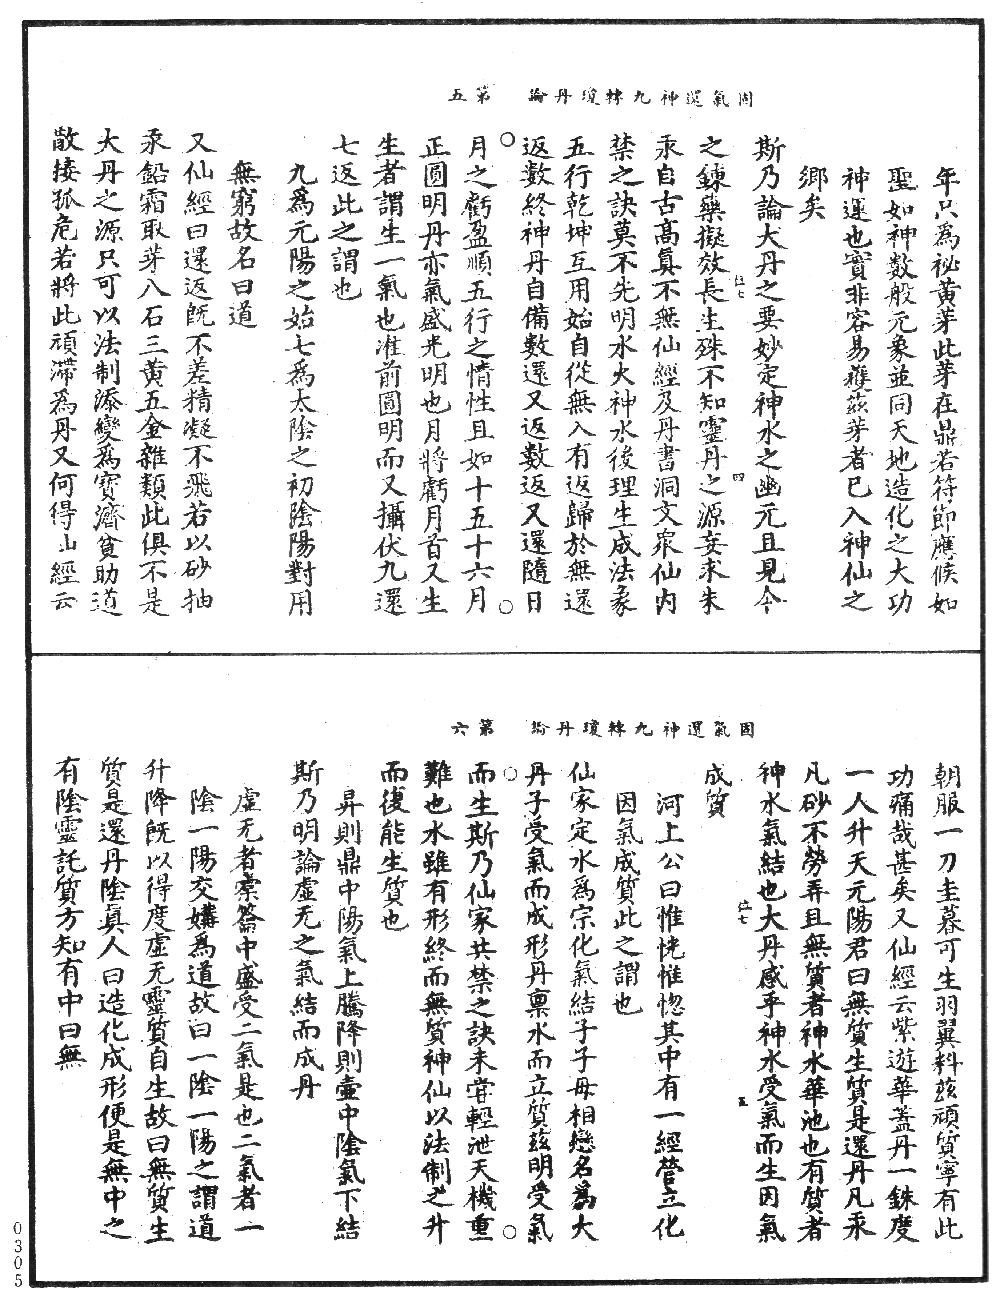 固氣還神九轉瓊丹論　第五
年只為祕黃芽此芽在鼎若符節應候如
聖如神數般元象並同天地造化之大功
神運也實非容易獲茲芽者已入神仙之
鄉矣
斯乃論大丹之要妙定神水之幽元且見今
之鍊藥擬效長生殊不知靈丹之源妄求朱
汞自古高真不無仙經及丹書洞文眾仙內
禁之訣莫不先明水火神水後理生成法象
五行乾坤互用始自從無入有返歸於無還
返數終神丹自備數還又返數返又還隨日
月之虧盈順五行之情性且如十五十六月
正圓明丹亦氣盛光明也月將虧月首又生
生者謂生一氣也准前圓明而又攝伏九還
七返此之謂也
九為元陽之始七為太陰之初陰陽對用
無窮故名曰道
又仙經曰還返既不差精凝不飛若以砂抽
汞鉛霜取芽八石三黃五金雜類此俱不是
大丹之源只可以法制添變為寶濟貧助道
散接孤危若將此頑滯為丹又何得山經云
位七
四
固氣還神九轉瓊丹論　第六
朝服一刀圭暮可生羽翼料茲頑質寧有此
功痛哉甚矣又仙經云紫遊華蓋丹一銖度
一人升天元陽君曰無質生質是還丹凡汞
凡砂不勞弄且無質者神水華池也有質者
神水氣結也大丹感乎神水受氣而生因氣
成質
河上公曰惟恍惟惚其中有一經營立化
因氣成質此之謂也
仙家定水為宗化氣結子子母相戀名為大
丹子受氣而成形丹稟水而立質茲明受氣
而生斯乃仙家共禁之訣未嘗輕泄天機重
難也水雖有形終而無質神仙以法制之升
而復能生質也
昇則鼎中陽氣上騰降則壺中陰氣下結
斯乃明論虛无之氣結而成丹
虛无者橐籥中盛受二氣是也二氣者一
陰一陽交媾為道故曰一陰一陽之謂道
升降既以得度虛无靈質自生故曰無質生
質是還丹陰真人曰造化成形便是無中之
有陰靈託質方知有中曰無
位七
五
0305